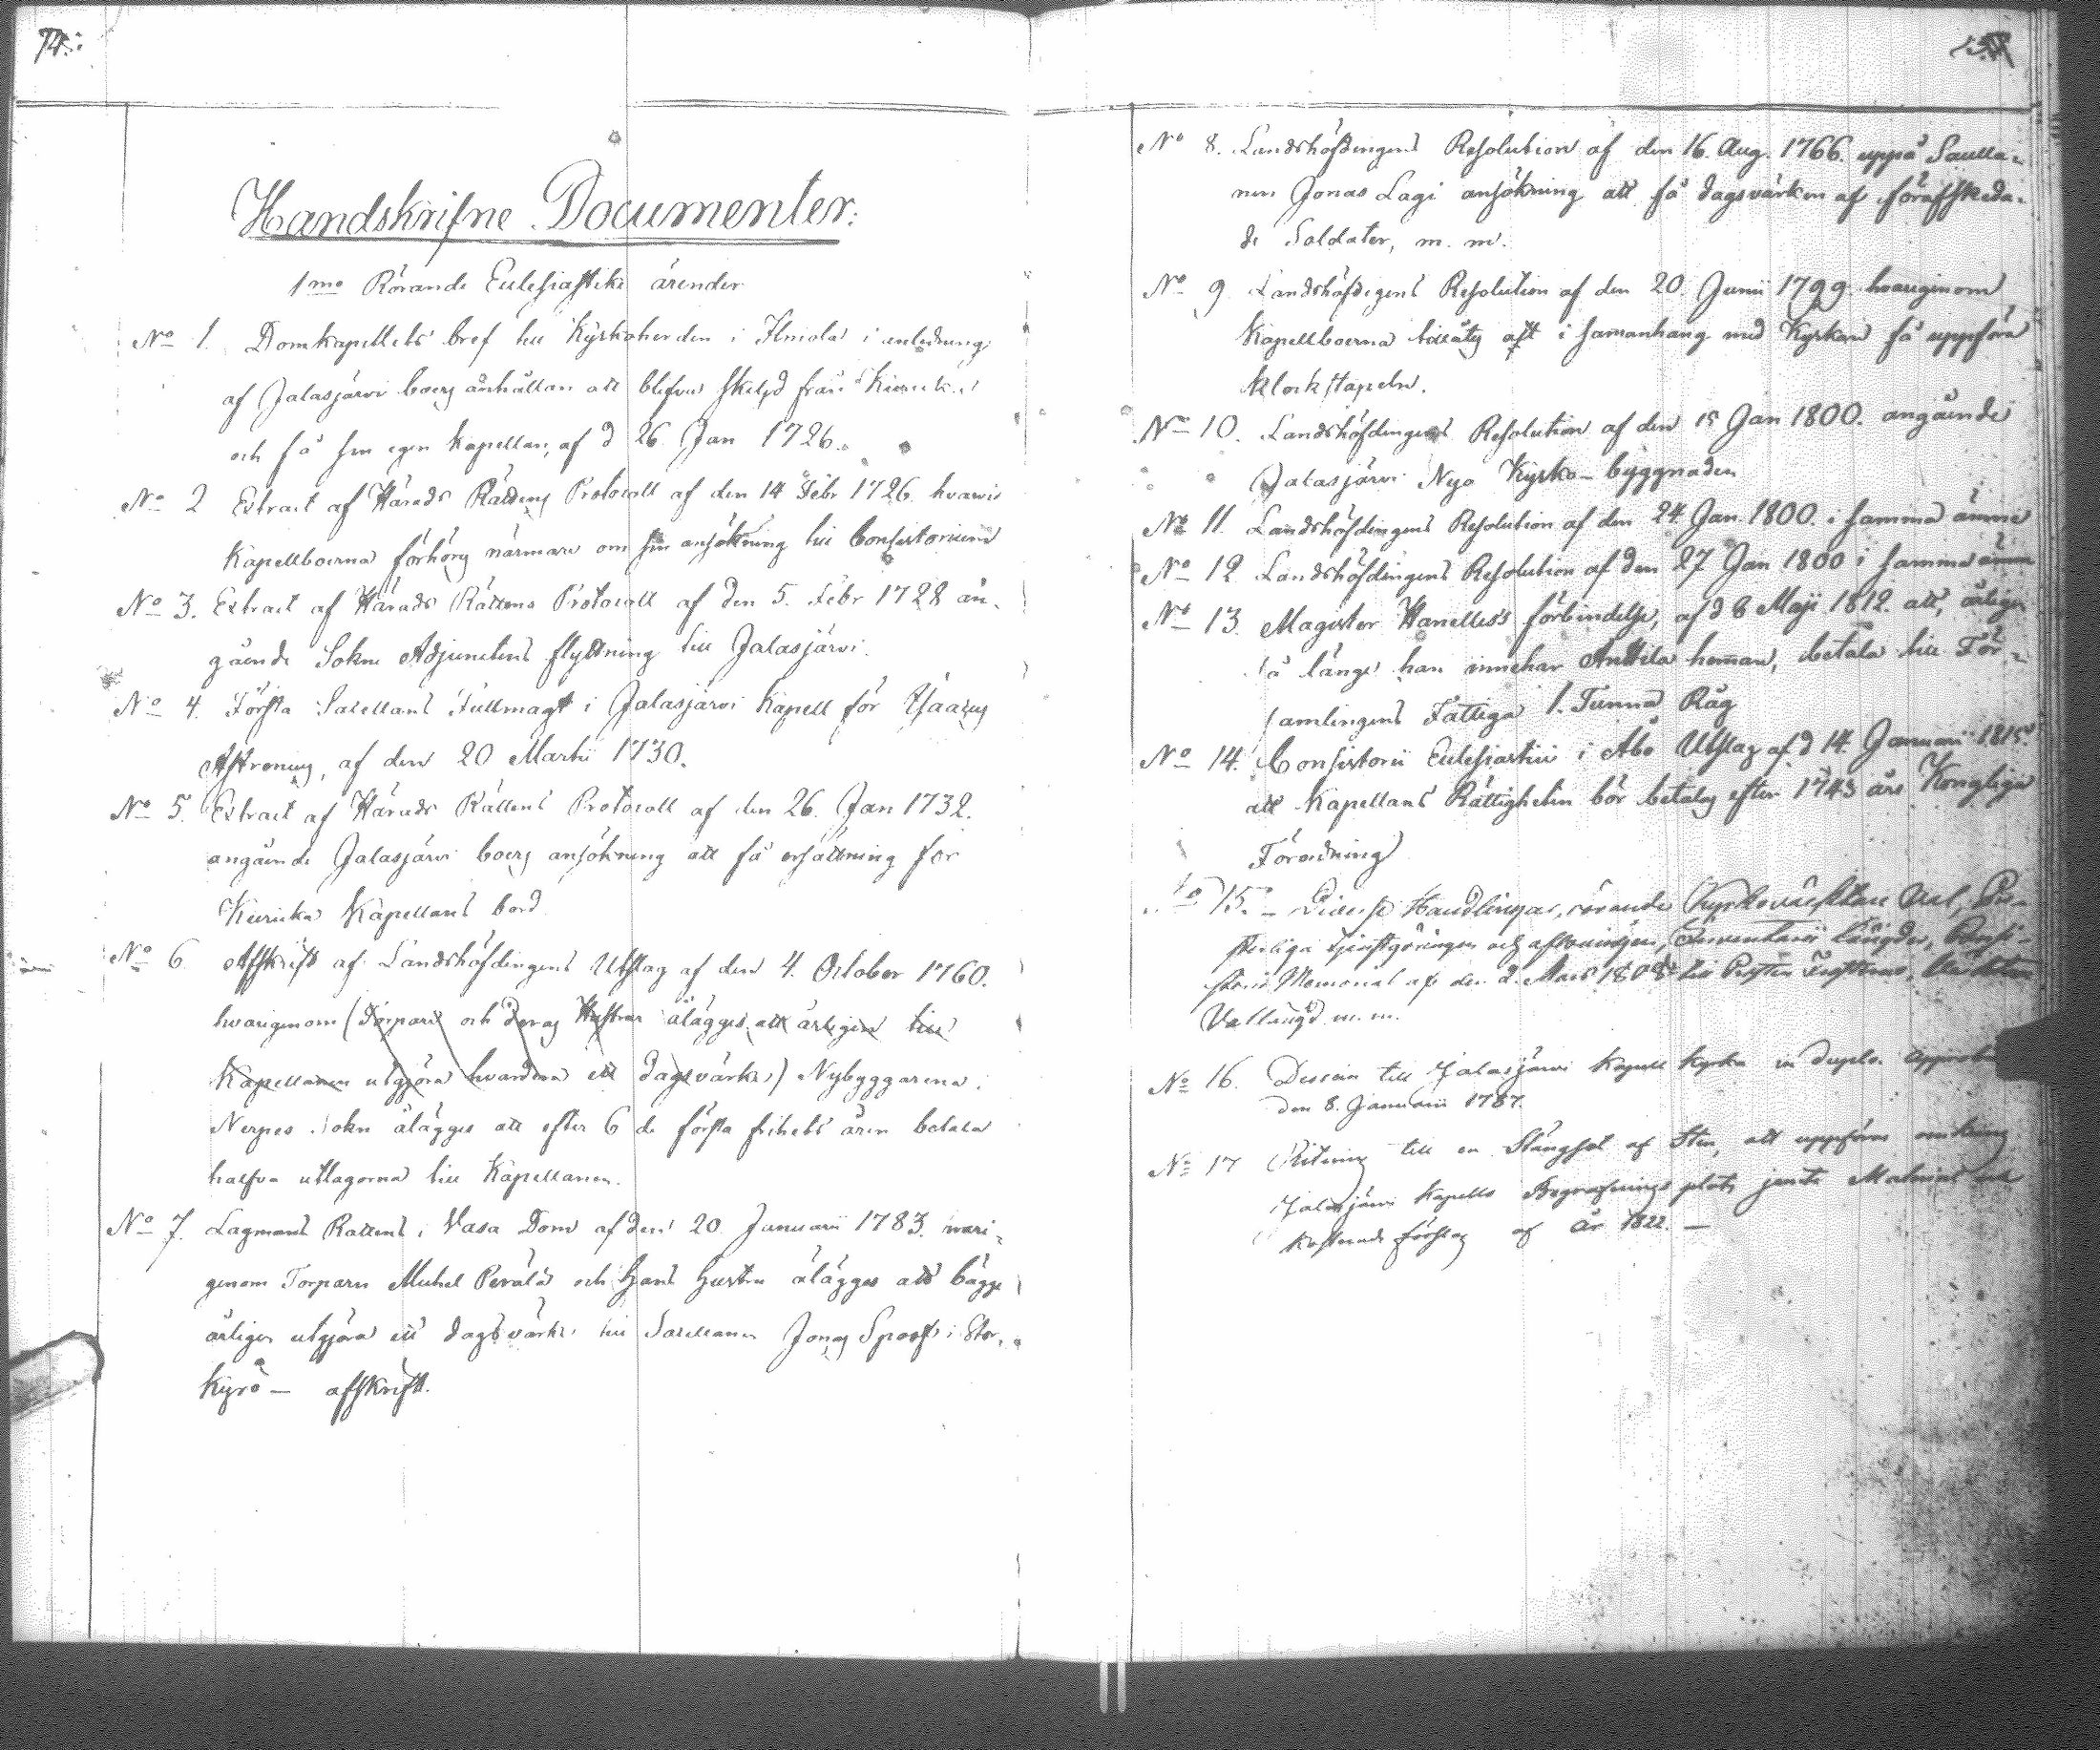 74.
Handskrifne Documenter:
1mo Rörande Eclesiastike ärender
No 1. Domkapitlets bref till Kyrkoherden i Ilmola i anledning
af Jalasjärvi boers anhållan att blifva skilgd från Kurick
och få sin egen kapellan, af d 26 Jan 1726.
No 2 Extract af Härads Rättens Protocoll af den 14 Febr 1726. hvarvid
Kapellboerna förhörs närmare om sin ansökning till Consistorium
No 3. Extract af Härads Rättens Protocoll af den 5. Febr 1728 an-
gående Sokne Adjunctens flyttning till Jalasjärvi.
No 4. Första Sacellans Fullmagt i Jalasjärvi Kapell för Isaacus
Astrenius, af den 20 Martii 1730.
No 5. Extract af Härads Rättens Protocoll af den 26. Jan 1732.
angående Jalasjärvi boers ansökning att få ersättning for
Kuricka Kapellans bord
No 6 Afskrift af Landshöfdingens Utslag af den 4. October 1760.
hvarigenom (Torpare och deras Hustrur ålägges att årligen till
Kapellanen utgjöra hvardera ett dagsvärke) Nybyggarena i
Nerpes Sokn ålägges att efter 6 de första frihets åren betala
halfva utlagorna till Kapellanen.
No 7. Lagmans Rättens i Vasa Dom af den 20 Januarii 1783. vari-
genom Torparen Michel Perälä och hans hustru ålägges att bägge
årligen utgjöra ett dagsvärke till Sacellanen Jonas Spoof i Stor-
Kyrö — afskrift.
No 8. Landshöfdingens Resolution af den 16. Aug. 1766. uppå Sacella-
nen Jonas Lagi ansökning att få dagsvärken af förafskeda-
de Soldater, m. m.
No 9. Landshöfdigens Resolution af den 20. Junii 1799. hvarigenom
Kapellboerna tillåtes att i samanhang med Kyrkan få uppföra
klockstapeln.
No 10. Landshöfdingens Resolution af den 15 Jan 1800. angående
Jalasjärvi Nya Kyrko-byggnaden
No 11. Landshöfdingens Resolution af den 24. Jan. 1800. i samma ämne
No 12 Landshöfdingens Resolution af den 27 Jan 1800 i samma ämne
No 13. Magister Hanelles's förbindelse, af d 8 Maji 1812. att, årligen
så länge han innehar Anttila heman, betala till För-
samlingens Fattiga 1. Tunna Råg
No 14. Consistorii Eclesiastici i Åbo Utslag af d 14. Januarii 1815.
att Kapellans Rättigheten bör betalas efter 1743 års Kongliga
Förordning
No 15. — Diverse Handlingar, rörande
tjenstgöringen och aflöningen, Inventarii längder,
Memorial af den 2. Mars 1808 till
m. m.
No 16. Dessein till Jalasjärvi Kapell kyrka in duplo.
den 8. Januarii 1787.
No 17 Ritning till en Stängsel af Sten, att uppföras omkring
Jalasjärvi Kapells Begrafnings plats jemte Material och
Kostnads förslag af år 1822. —